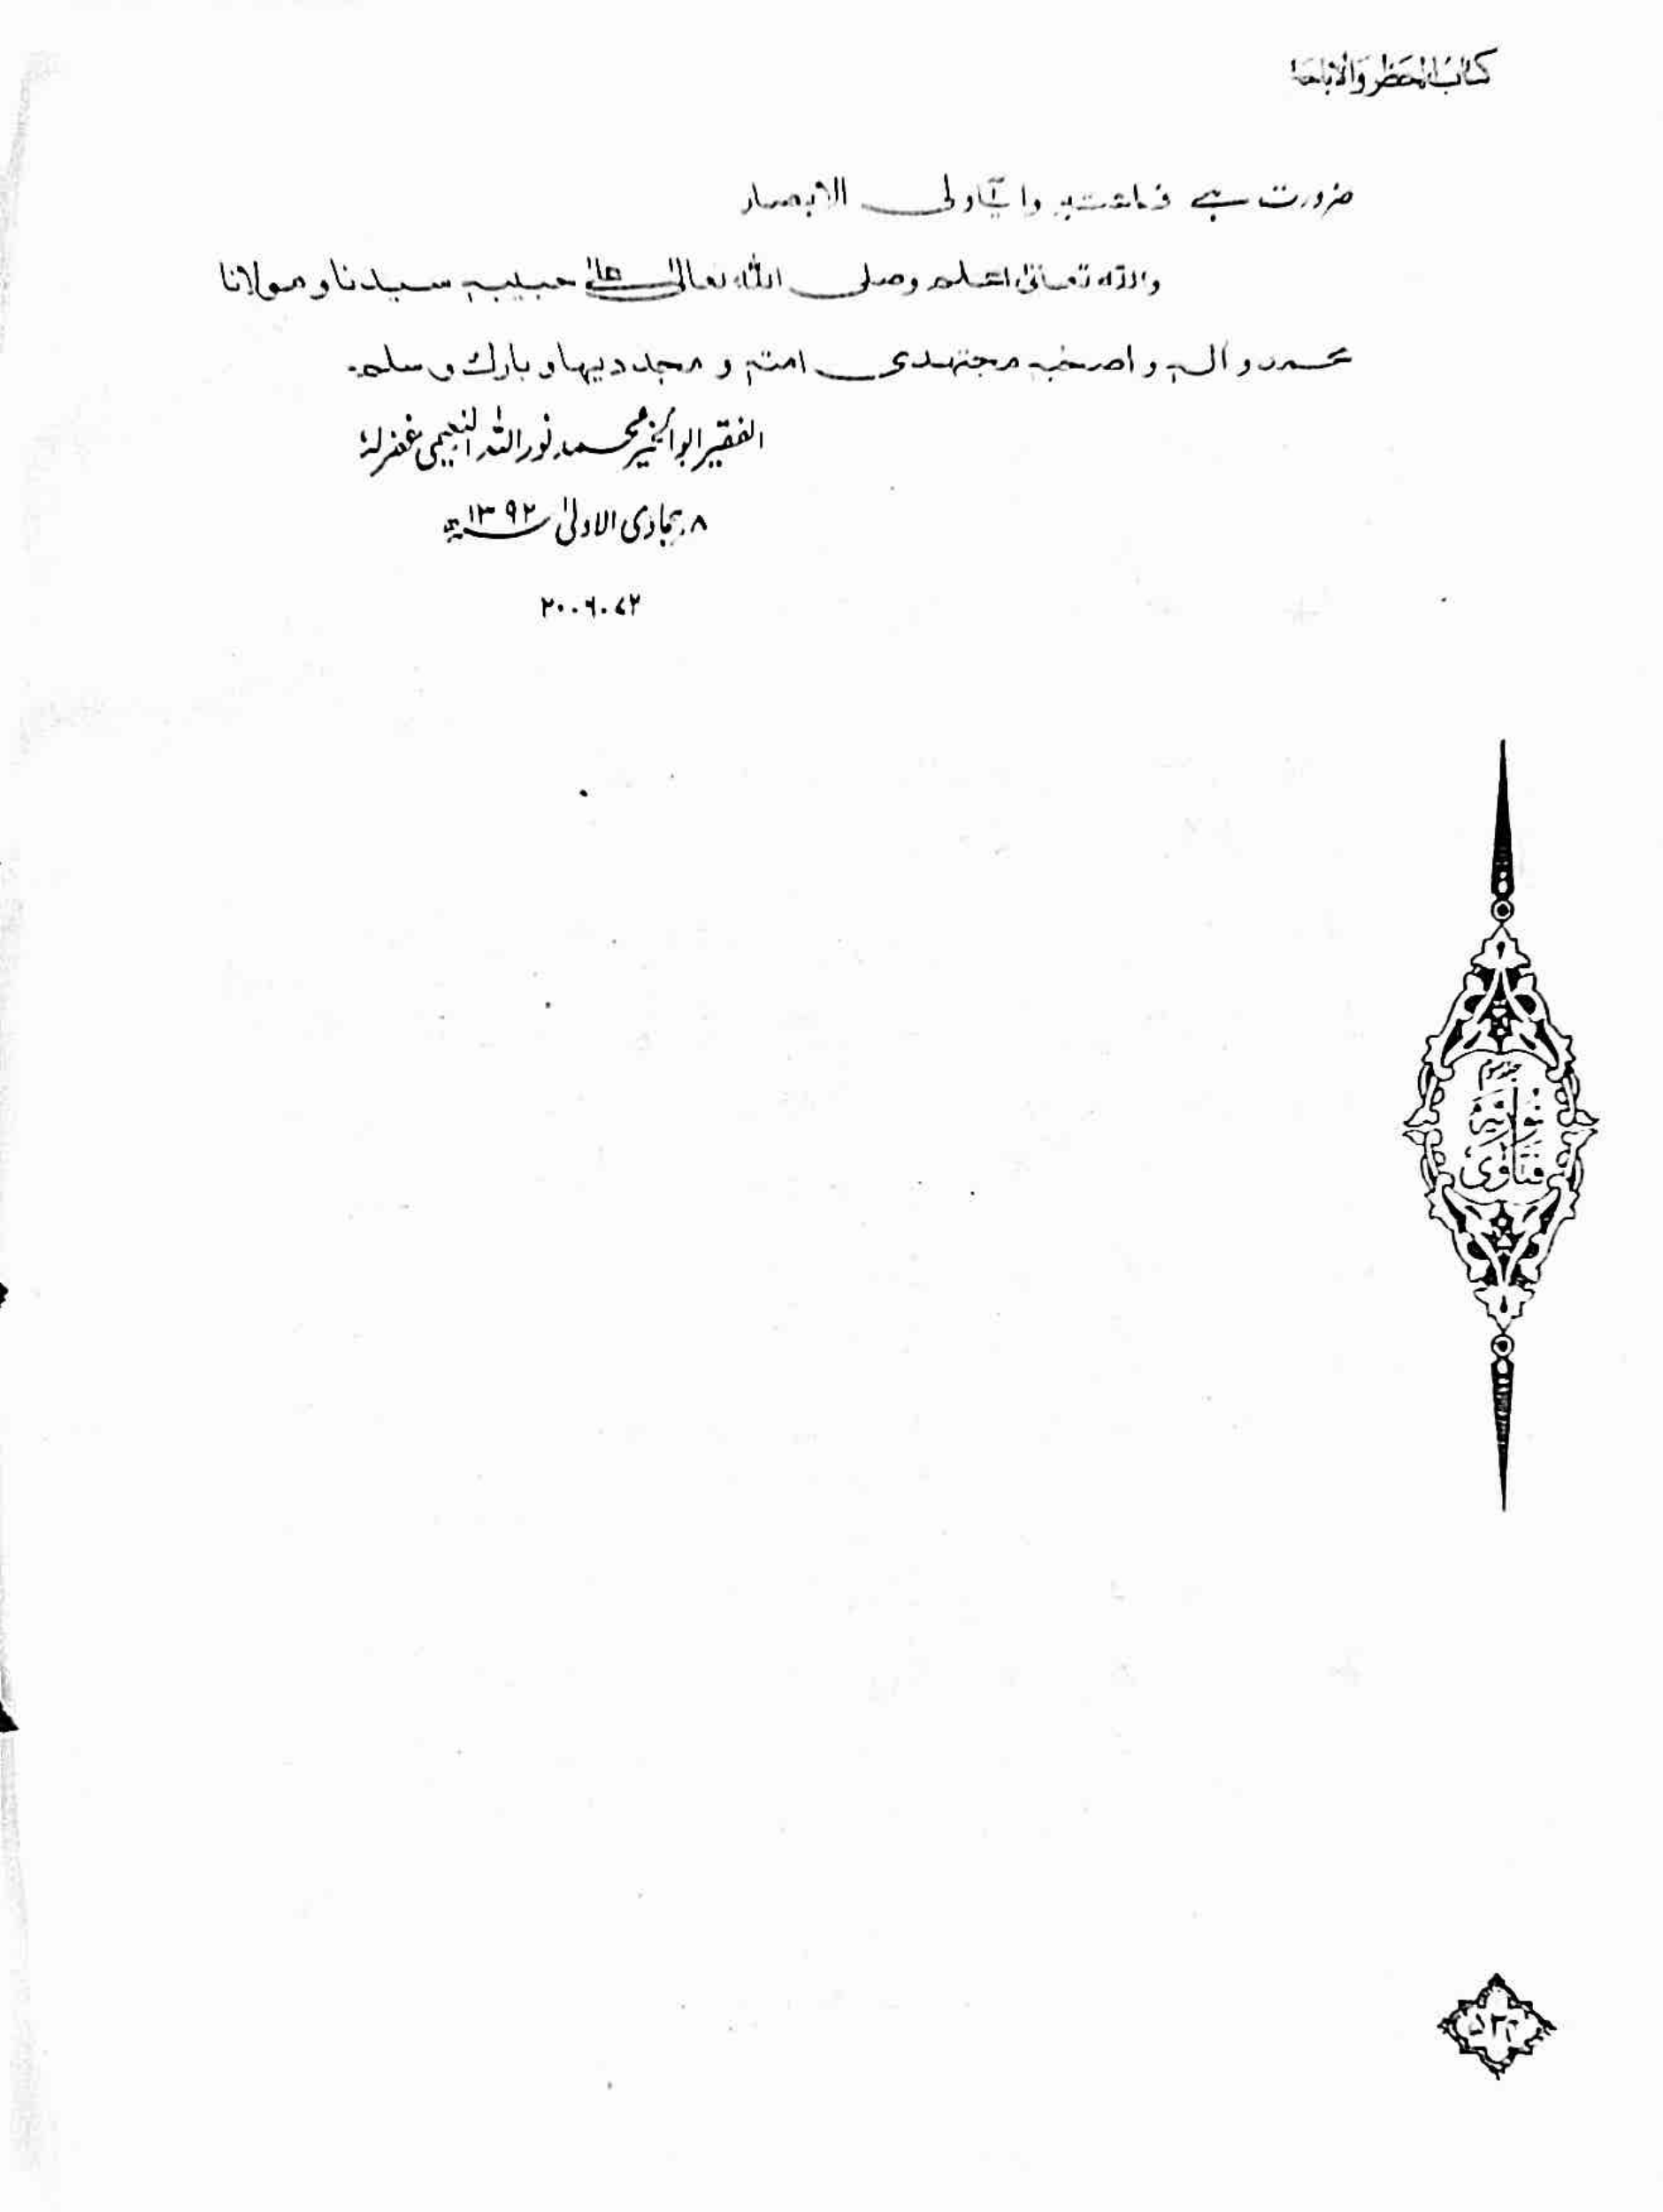 کتاب الحظر والاباحة
ضرورت ہے فاعتبروا یٰٓاولی الابصار
واللہ تعالیٰ اعلم وصلی اللہ تعالیٰ علیٰ حبیبہ سیدنا و مولانا
محمد و آلہ و اصحٰبہ مجتہدی امتہ و مجددیہا و بارک و سلم۔
الفقیر ابوالخیر محمد نور اللہ النعیمی غفرلہ
۸ جمادی الاولیٰ ۱۳۹۲ھ
۲۰۔۶۔۷۲
فتاوی
نوریہ